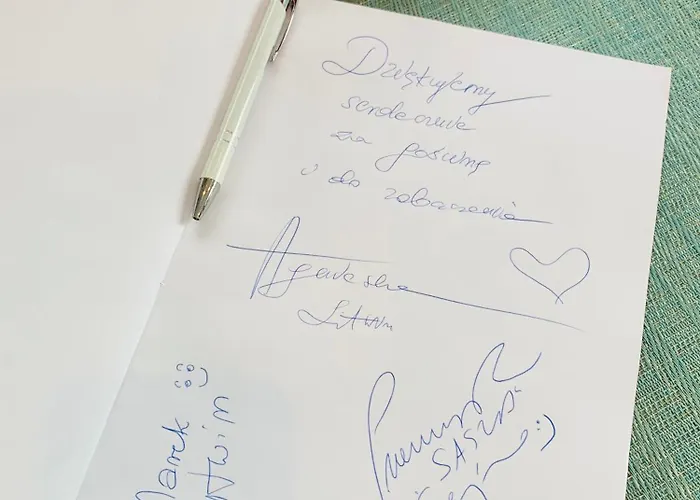 Dziękujemy
serdecznie
za gościnę
i do zobaczenia
Agnieszka
Litwin
Marek
Litwin
"SASZA"
:)